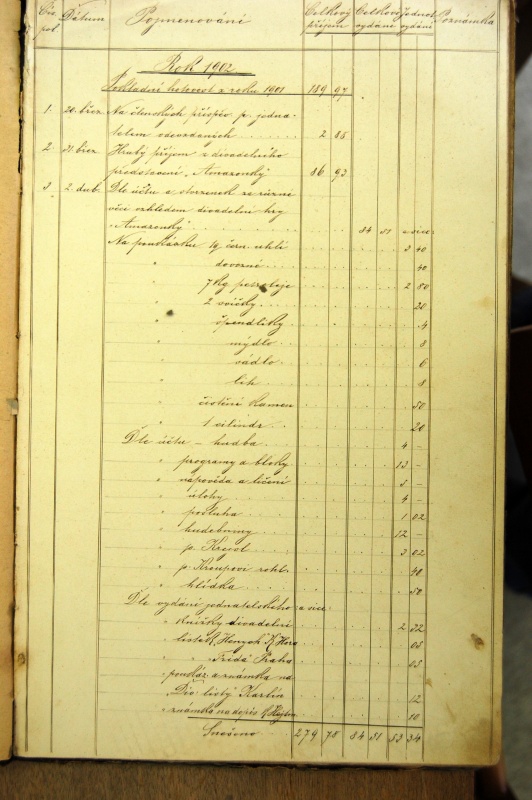 Čís. pol. Dátum Pojmenování Celkový příjem Celkové vydání Jednot. vydání Poznámka
Rok 1902
Pokladní hotovost z roku 1901 189 97
1. 20. břez. Na členských příspěv. p. jedna-
telem odevzdaných 2 85
2. 31. břez. Hrubý příjem z divadelního
představení „Amazonky" 86 93
3. 2. dub. Dle účtu a stvrzenek za různé
věci vzhledem divadelní hry
„Amazonky" 84 51 a sice:
Na poukázku 1q čern. uhlí 2 40
" dovozné 40
" 7 kg petroleje 2 80
" 2 svíčky 20
" špendlíky 4
" mýdlo 8
" sádlo 6
" líh 8
" čistění kamen 50
" 1 cilindr 20
Dle účtu – hudba 4 –
" programy a bloky 13 –
" nápověda a líčení –
" úlohy 4 –
" posluha 1 02
" hudebniny 12 –
" p. 3 02
" p. Kroupovi 40
" hlídka 50
Dle vydání jednatelského a sice
" knížky divadelní 2 22
" listek Henych 05
" " Praha 05
" poukáz. a známka na
„Div. listy" Karlín 12
" známka na dopis 10
Snešeno 279 75 84 51 53 34